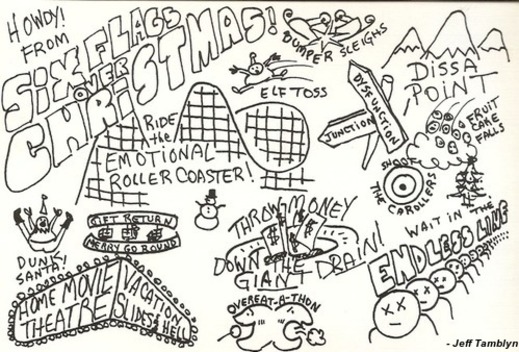 HOWDY!
FROM
SIX FLAGS
OVER
CHRISTMAS!
BUMPER SLEIGHS
ELF TOSS
DISSA
POINT
DYSFUNCTION
JUNCTION
FRUIT
CAKE
FALLS
RIDE
the
EMOTIONAL
ROLLER COASTER!
SHOOT
THE CAROLLERS
WAIT IN THE
ENDLESS LINE
DUNK
SANTA!
GIFT RETURN
MERRY GO ROUND
THROW MONEY
DOWN THE DRAIN!
GIANT
HOME MOVIE
THEATRE
VACATION
SLIDES HELL
OVEREAT-A-THON
- Jeff Tamblyn